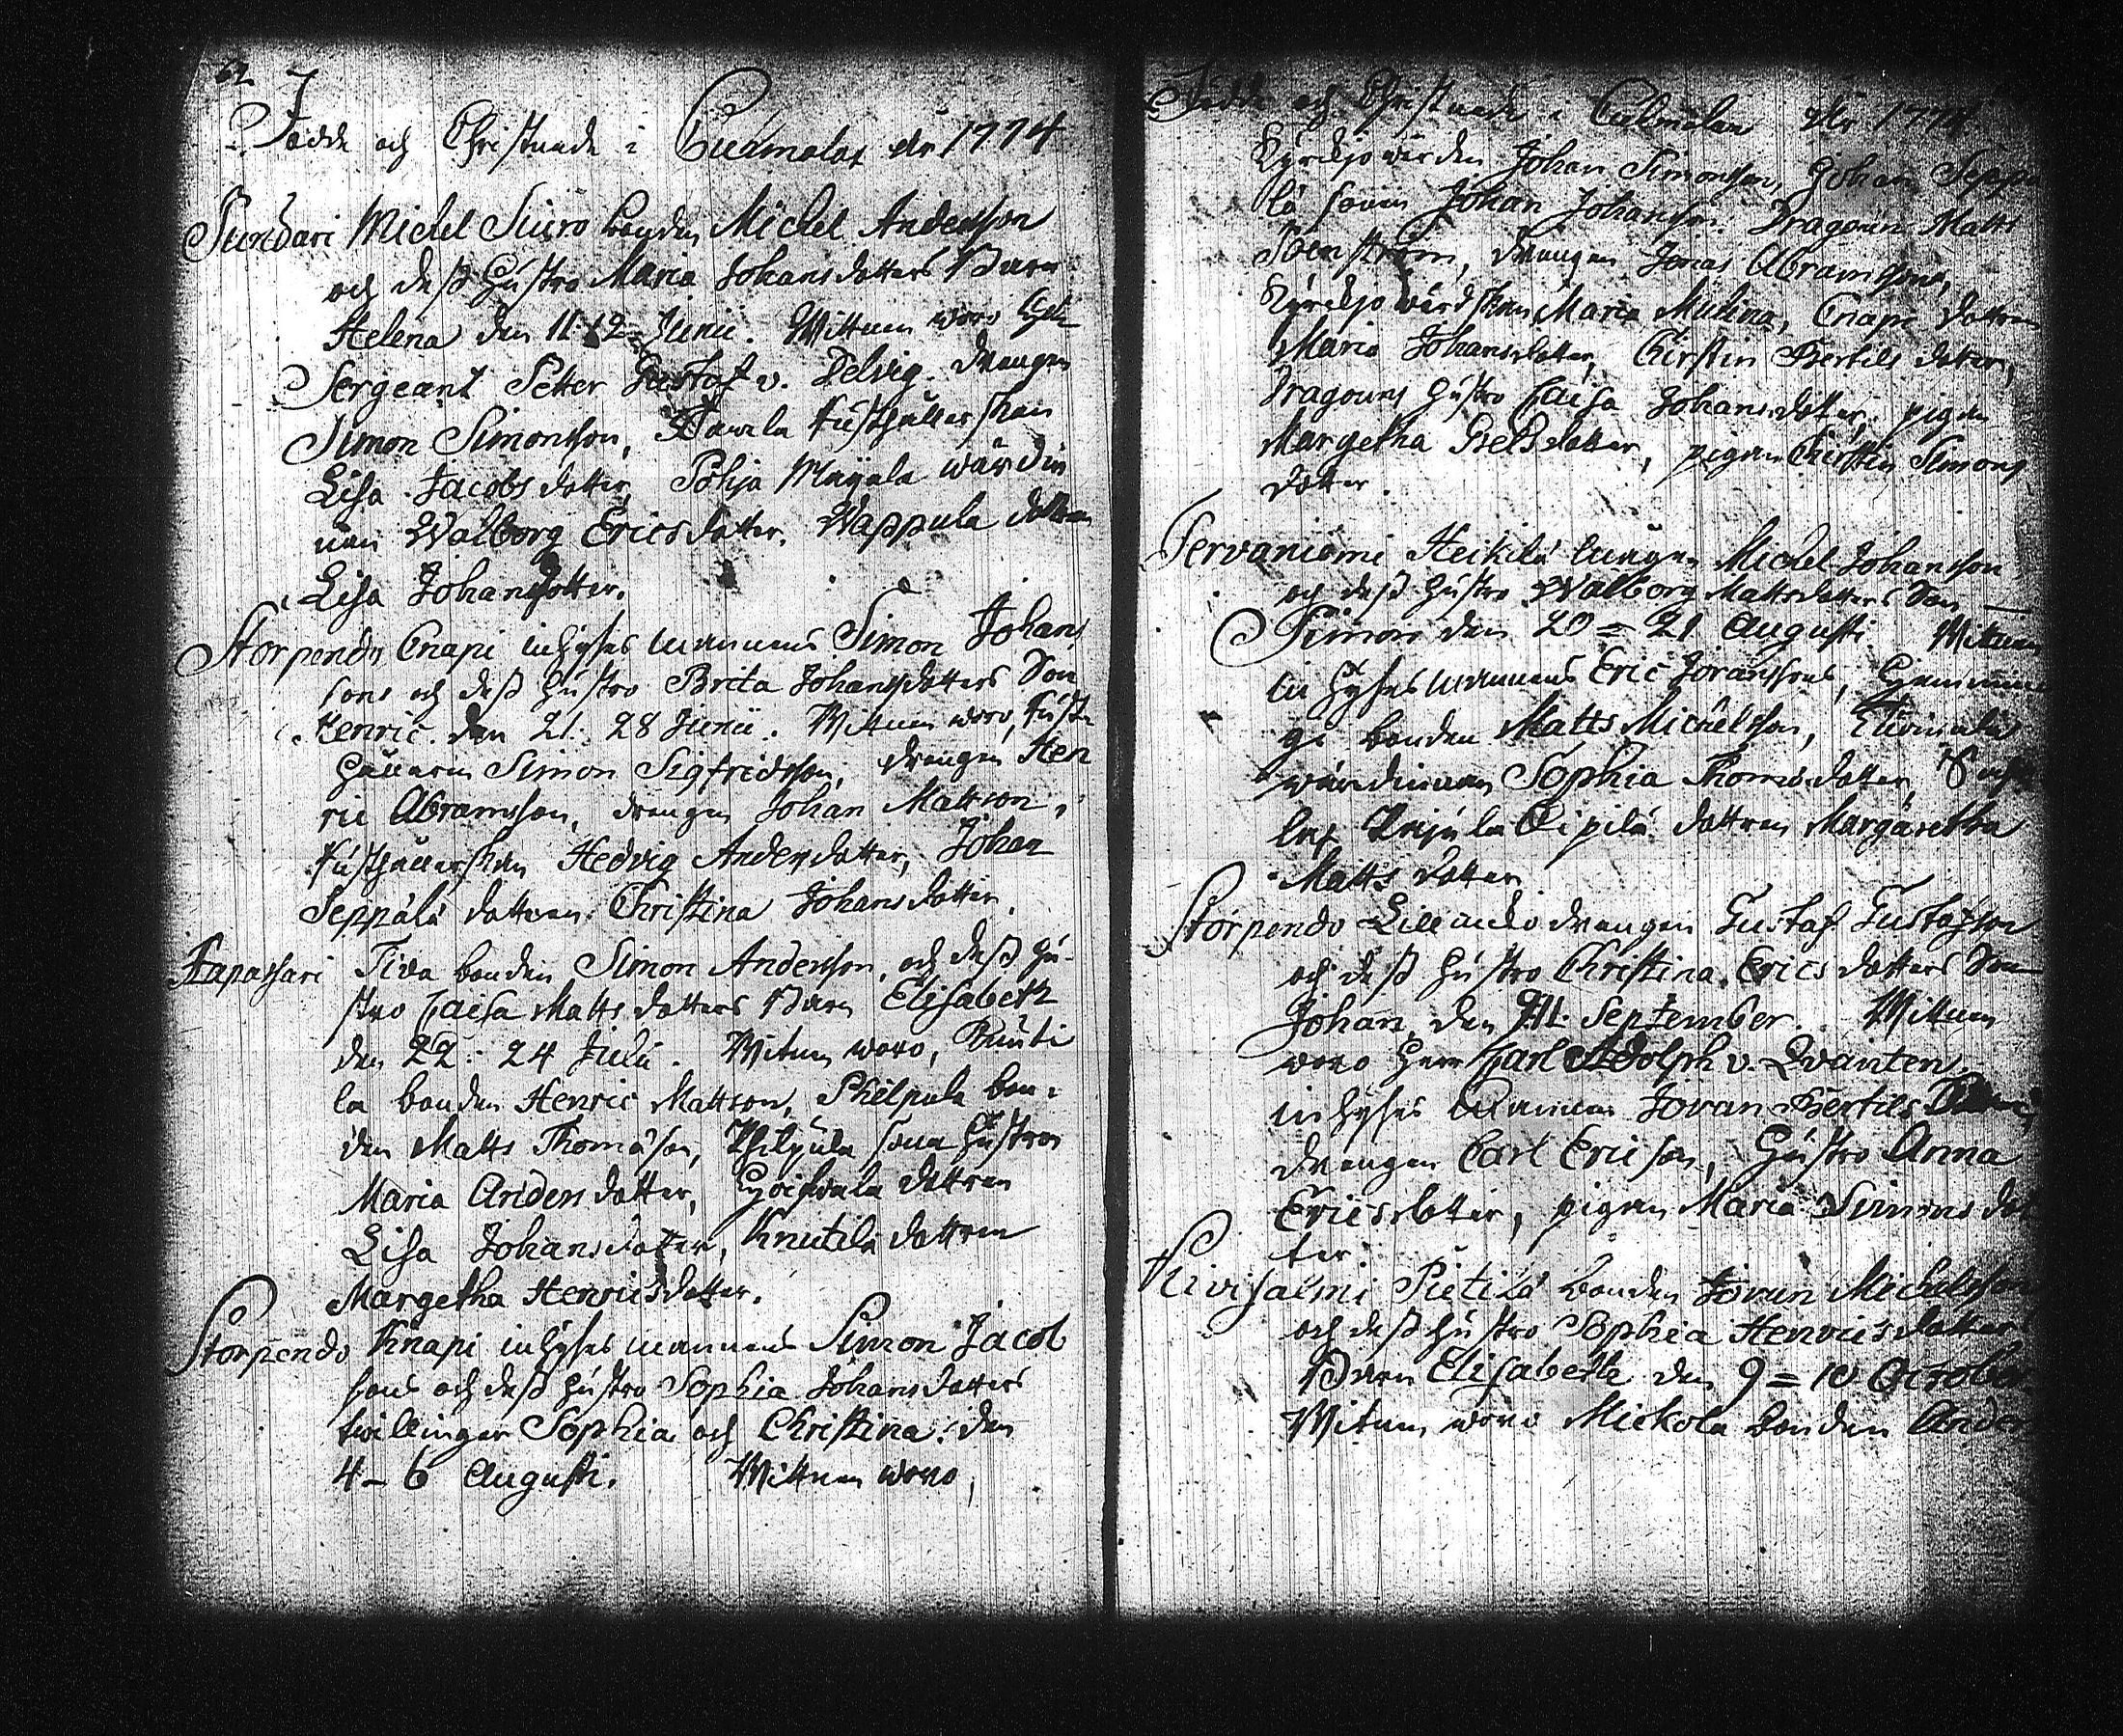 62
Födde och Christnade i Culmalax år 1774
Sundari Michel Siuro bonden Michel Andersson
och dess hustro Maria Johansdotters Barn
Helena den 11: 12 Junii. Wittnen woro
Sergeant Petter Gustaf v. Delvig. drengen
Simon Simonsson, Tawela Rusthållerskan
Lisa Jacobsdotter, Pohja Mayala wärdin
nan Walborg Ericsdotter. Wappula dottren
Lisa Johansdotter.
Storpendo Cnapi inhyses mannens Simon Johans
sons och dess hustro Brita Johansdotters Son
Henric. den 21: 28 Junii. Wittnen woro, Rust
hållarn Simon Sigfridsson, drengen Hen
ric Abramsson, drengen Johan Mattson,
Rusthållerskan Hedvig Andersdotter, Johan
Seppälä dottren Christina Johansdotter.
Hapasari Tiva bonden Simon Andersson, och dess hu-
stro Caisa Mattsdotters Barn Elisabeth
den 22: 24 Julii. Witnen woro,
la bonden Henric Mattson, Philpula bon-
den Matts Thomæson, Philpula sona hustron
Maria Andersdotter, dottren
Lisa Johansdotter, Knutila dottren
Margetha Henricsdotter.
Storpendo Knapi inhyses mannens Simon Jacob
sons och dess hustro Sophia Johansdotters
twillingar Sophia och Christina. den
4-6 Augusti. Wittnen woro,
Födde och Christnade i Culmalax År 1774
Kyrckjowärden Johan Simonsson, Johan Seppä
lä sonen Johan Johansson. Dragoun Matts
Stenström, drengen Jonas Abramsson,
Kyrckjowärdskan Maria Mulina, Cnapi dottren
Maria Johansdotter, Chirstin Bertilsdotter,
Dragouns hustro Caisa Johansdotter, pigan
Margetha dotter, pigan Chirstin Simons
dotter.
Tervaniemi Heikilä drengen Michel Johansson
och dess hustro Walborg Mattsdotters Son
Simon den 20=21 Augusti Wittnen
inhyses mannens Eric Joransson,
bonden Matts Michelsson,
wärdinnan Sophia Thomædotter,
lax dottren Margaretha
Mattsdotter
Storpendo Lillando drengen Gustaf Gustafsson
och dess hustro Christina Ericsdotters Son
Johan, den September. Wittnen
woro Herr Carl Adolph v. Qvanten
inhyses mannen Joran Bertils
drengen Carl Ericson, Hustro Anna
Ericsdotter, pigan Maria Simonsdot
ter
Kivisalmi Pietilä bonden Joran Michelsson
och dess hustro Sophia Henricsdotter
Barn Elisabetha den 9=10 October
Witnen woro Mickola bonden Anders